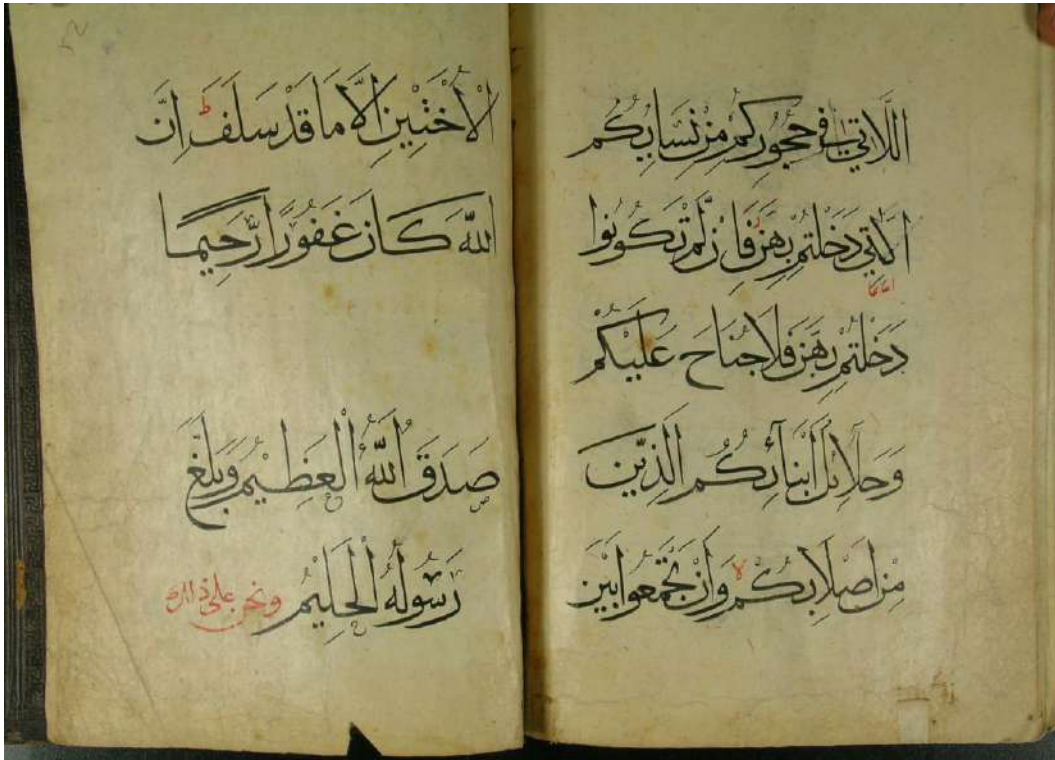 اللَّاتِي فِي حُجُورِكُمْ مِنْ نِسَايِكُمُ
الَّلتِي دَخَلْتُمْ بِهِنَّ فَاِنْ لَّمْ تَكُونُوا
دَخَلْتُمْ بِهِنَّ فَلَا جُنَاحَ عَلَيْكُمْ
وَحَلَآئِلُ اَبْنَآئِكُمُ الَّذِيْنَ
مِنْ اَصْلَابِكُمْ وَاَنْ تَجْمَعُوا بَيْنَ
الْاُخْتَيْنِ اِلَّا مَا قَدْ سَلَفَ ط اِنَّ
اللّٰهَ كَانَ غَفُوْرًا رَّحِيْمًا
صَدَقَ اللّٰهُ الْعَظِيْمُ وَبَلَّغَ
رَسُوْلُهُ الْحَلِيْمُ ونحن على ذلك